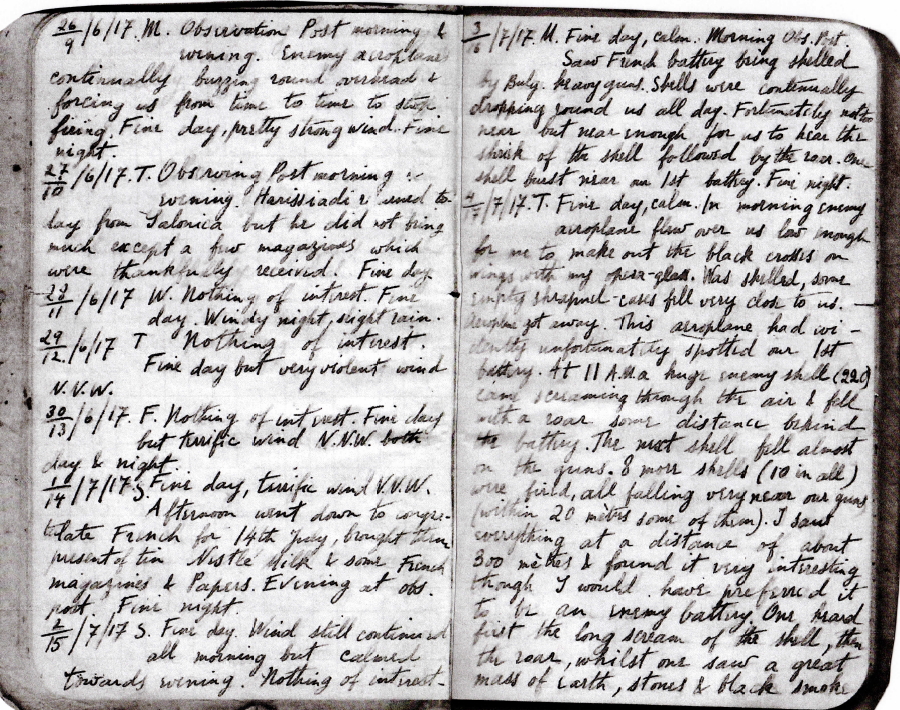 26/9 /6/17. M. Observation Post morning &
evening. Enemy aeroplanes
continually buzzing round overhead &
forcing us from time to time to stop
firing. Fine day, pretty strong wind. Fine
night.
27/10 /6/17. T. Observing Post morning &
evening. Harissiadis to-
day from Salonica but he did not bring
much except a few magazines which
were thankfully received! Fine day
28/11 /6/17 W. Nothing of interest. Fine
day. Windy night, slight rain.
29/12 /6/17 T Nothing of interest.
Fine day but very violent wind
V.V.W.
30/13 /6/17. F. Nothing of interest. Fine day
but terrific wind V.V.W. both
day & night
14 /7/17 S. Fine day, terrific wind V.V.W.
Afternoon went down to congra-
tulate French for 14th July, brought them
present of tin Nestlé Milk & some French
magazines & Papers. Evening at obs.
post. Fine night.
2/15 /7/17 S. Fine day. Wind still continued
all morning but calmed
towards evening. Nothing of interest.
3/ /7/17. M. Fine day, calm. Morning Obs. Post.
Saw French battery being shelled
by Bulg. heavy guns. Shells were continually
dropping round us all day. Fortunately not too
near but near enough for us to hear the
shriek of the shell followed by the roar. One
shell burst near our 1st battery. Fine night.
/7/17. T. Fine day, calm. In morning enemy
aeroplane flew over us low enough
for me to make out the black crosses on
wings with my opera-glass. Was shelled, some
empty shrapnel-cases fell very close to us.
Aeroplane got away. This aeroplane had evi-
dently unfortunately spotted our 1st
battery. At 11 A.M. a huge enemy shell (220)
came screaming through the air & fell
with a roar some distance behind
the battery. The next shell fell almost
on the guns. 8 more shells (10 in all)
were fired, all falling very near our guns
(within 20 metres some of them). I saw
everything at a distance of about
300 metres & found it very interesting
though I would have preferred it
to be an enemy battery. One heard
first the long scream of the shell, then
the roar, whilst one saw a great
mass of earth, stones & black smoke